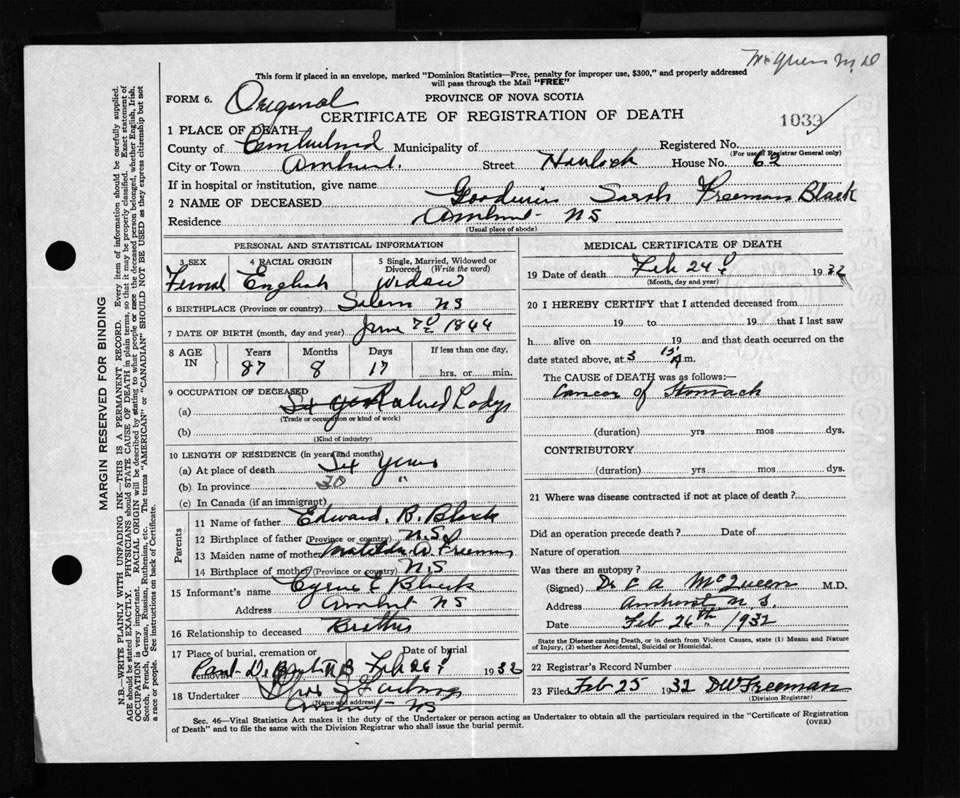 McQueen M.D
This form if placed in an envelope, marked "Dominion Statistics—Free, penalty for improper use, $300," and properly addressed
will pass through the Mail "FREE"
FORM 6. Original
PROVINCE OF NOVA SCOTIA
CERTIFICATE OF REGISTRATION OF DEATH
1033
1 PLACE OF DEATH
County of Cumberland Municipality of Registered No.
(For use of Registrar General only)
City or Town Amherst. Street Havelock House No. 62
If in hospital or institution, give name
2 NAME OF DECEASED Goodwin Sarah Freeman Black
Residence Amherst - NS
(Usual place of abode)
PERSONAL AND STATISTICAL INFORMATION
3 SEX 4 RACIAL ORIGIN 5 Single, Married, Widowed or
Divorced. (Write the word)
Femal English Widow
6 BIRTHPLACE (Province or country) Salem NS
7 DATE OF BIRTH (month, day and year) June 7 1844
8 AGE IN Years Months Days If less than one day,
87 8 17 hrs. or min.
9 OCCUPATION OF DECEASED
(a) Retired Ladys
(Trade or occupation or kind of work)
(b)
(Kind of industry)
10 LENGTH OF RESIDENCE (in years and months)
(a) At place of death Six years
(b) In province "
(c) In Canada (if an immigrant)
Parents
11 Name of father Edward. B. Black
12 Birthplace of father (Province or country) N.S.
13 Maiden name of mother Matilda W Freeman
14 Birthplace of mother (Province or country) N,S
15 Informant's name Black
Address Amherst NS
16 Relationship to deceased Brother
17 Place of burial, cremation or removal Date of burial
Point De Bute N B Feb 26 1932
18 Undertaker
(Name and address)
Amherst - NS
MEDICAL CERTIFICATE OF DEATH
19 Date of death Feb 24 1932
(Month, day and year)
20 I HEREBY CERTIFY that I attended deceased from
19 to 19 that I last saw
h alive on 19 and that death occurred on the
date stated above, at 3 15 A m.
The CAUSE of DEATH was as follows:—
Cancer of Stomach
(duration) yrs mos dys.
CONTRIBUTORY
(duration) yrs mos dys.
21 Where was disease contracted if not at place of death?
Did an operation precede death? Date of
Nature of operation
Was there an autopsy?
(Signed) Dr C A McQueen M.D.
Address Amherst N.S.
Date Feb 26th 1932
State the Disease causing Death, or in death from Violent Causes, state (1) Means and Nature
of Injury, (2) whether Accidental, Suicidal or Homicidal.
22 Registrar's Record Number
23 Filed Feb 25 1932 DW Freeman
(Division Registrar)
Sec. 46—Vital Statistics Act makes it the duty of the Undertaker or person acting as Undertaker to obtain all the particulars required in the "Certificate of Registration
of Death" and to file the same with the Division Registrar who shall issue the burial permit.
(OVER)
MARGIN RESERVED FOR BINDING
N.B.—WRITE PLAINLY WITH UNFADING INK—THIS IS A PERMANENT RECORD. Every item of information should be carefully supplied.
AGE should be stated EXACTLY. PHYSICIANS should STATE CAUSE OF DEATH in plain terms, so that it may be properly classified. Exact statement of
OCCUPATION is very important. RACIAL ORIGIN will be described by stating to what people or race the deceased person belonged, whether English, Irish,
Scotch, French, German, Russian, Ruthenian, etc. The terms "AMERICAN" or "CANADIAN" SHOULD NOT BE USED as they express citizenship but not
a race or people. See instructions on back of Certificate.